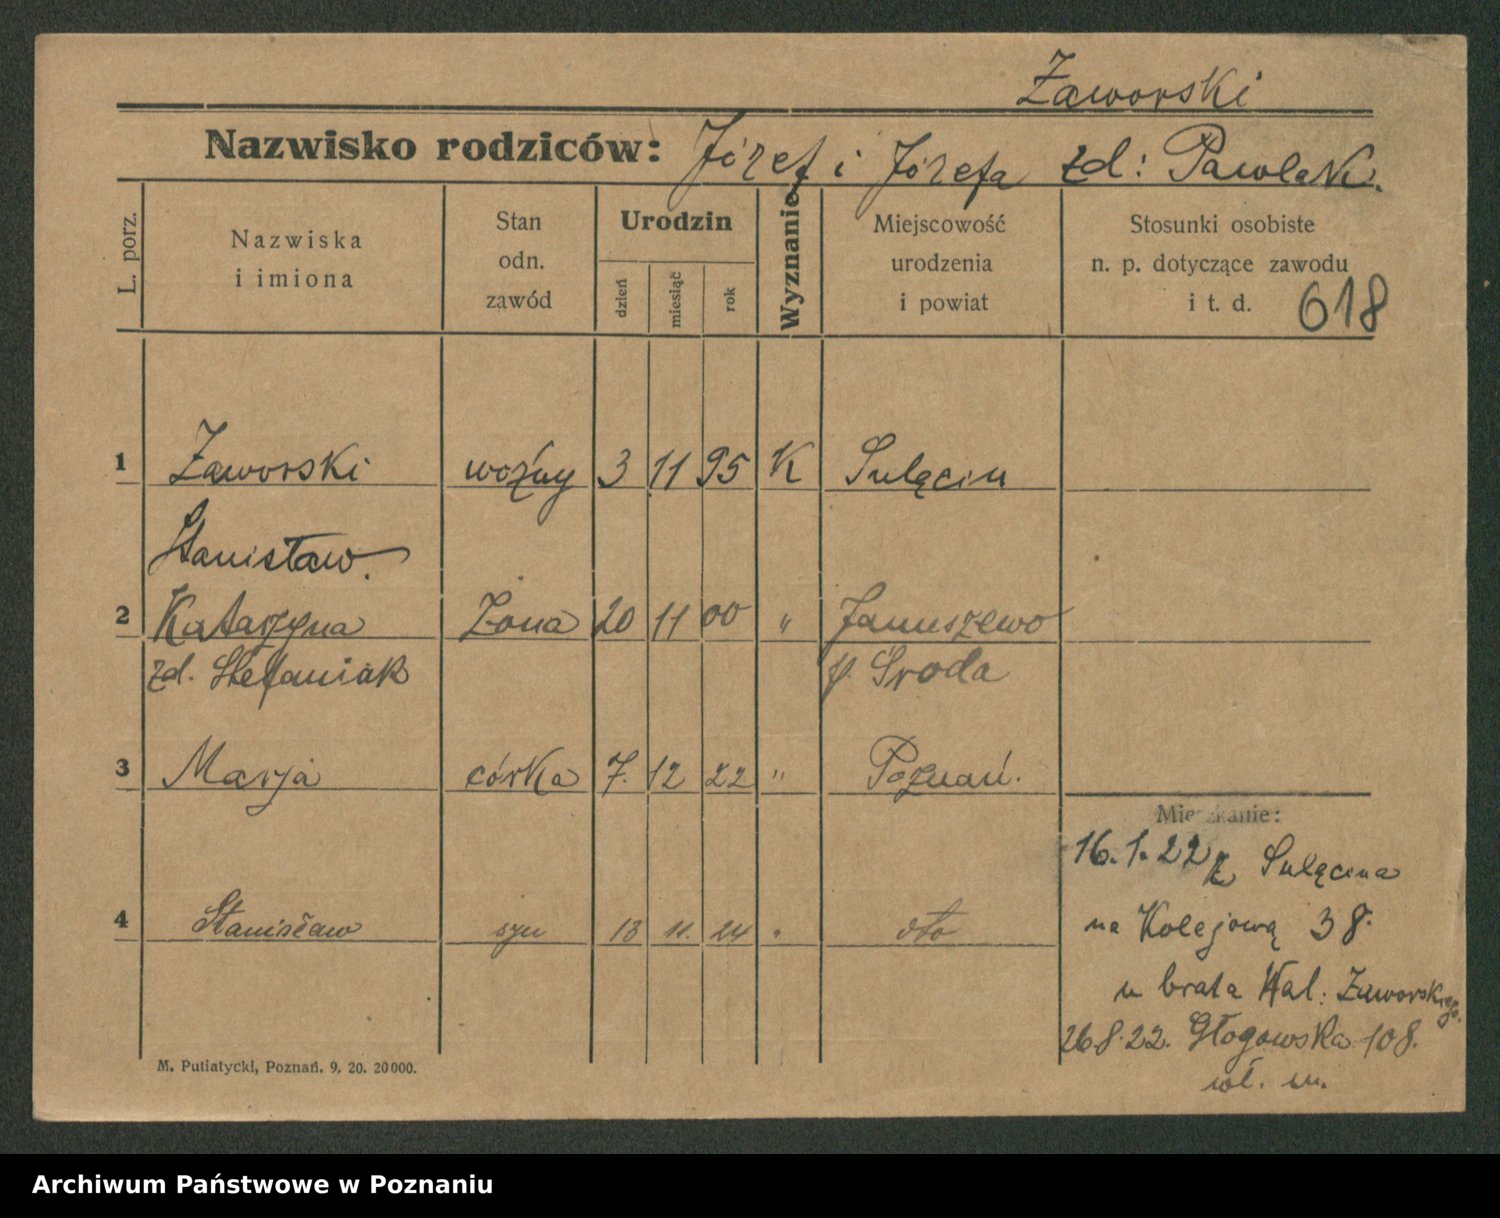 Zaworski
Nazwisko rodziców: Józef i Józefa zd: Pawlak.
L. porz.
Nazwiska i imiona
Stan odn. zawód
Urodzin
dzień
miesiąc
rok
Wyznanie
Miejscowość urodzenia i powiat
Stosunki osobiste n. p. dotyczące zawodu i t. d.
618
1 Zaworski woźny 3 11 95 K Sulęcin
Stanisław.
2 Katarzyna Żona 20 11 00 " Januszewo
zd. Stefaniak p. Sroda
3 Marja córka 7. 12 22 " Poznań.
Mieszkanie:
16.1.22 z Sulęcina
4 Stanisław syn 13 11. 24 " dto
na Kolejową 38.
u brata Wal. Zaworskiego.
26.8.22. Głogowska 108.
wł. m.
M. Putiatycki, Poznań. 9. 20. 20000.
Archiwum Państwowe w Poznaniu